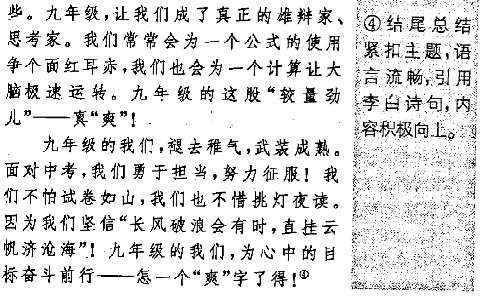 些。九年级，让我们成了真正的雄辩家、
思考家。我们常常会为一个公式的使用
争个面红耳赤，我们也会为一个计算让大
脑极速运转。九年级的这股“较量劲
儿”——真“爽”！
九年级的我们，褪去稚气，武装成熟。
面对中考，我们勇于担当，努力征服！我
们不怕试卷如山，我们也不惜挑灯夜读。
因为我们坚信“长风破浪会有时，直挂云
帆济沧海”！九年级的我们，为心中的目
标奋斗前行——怎一个“爽”字了得！④
④结尾总结
紧扣主题，语
言流畅，引用
李白诗句，内
容积极向上。